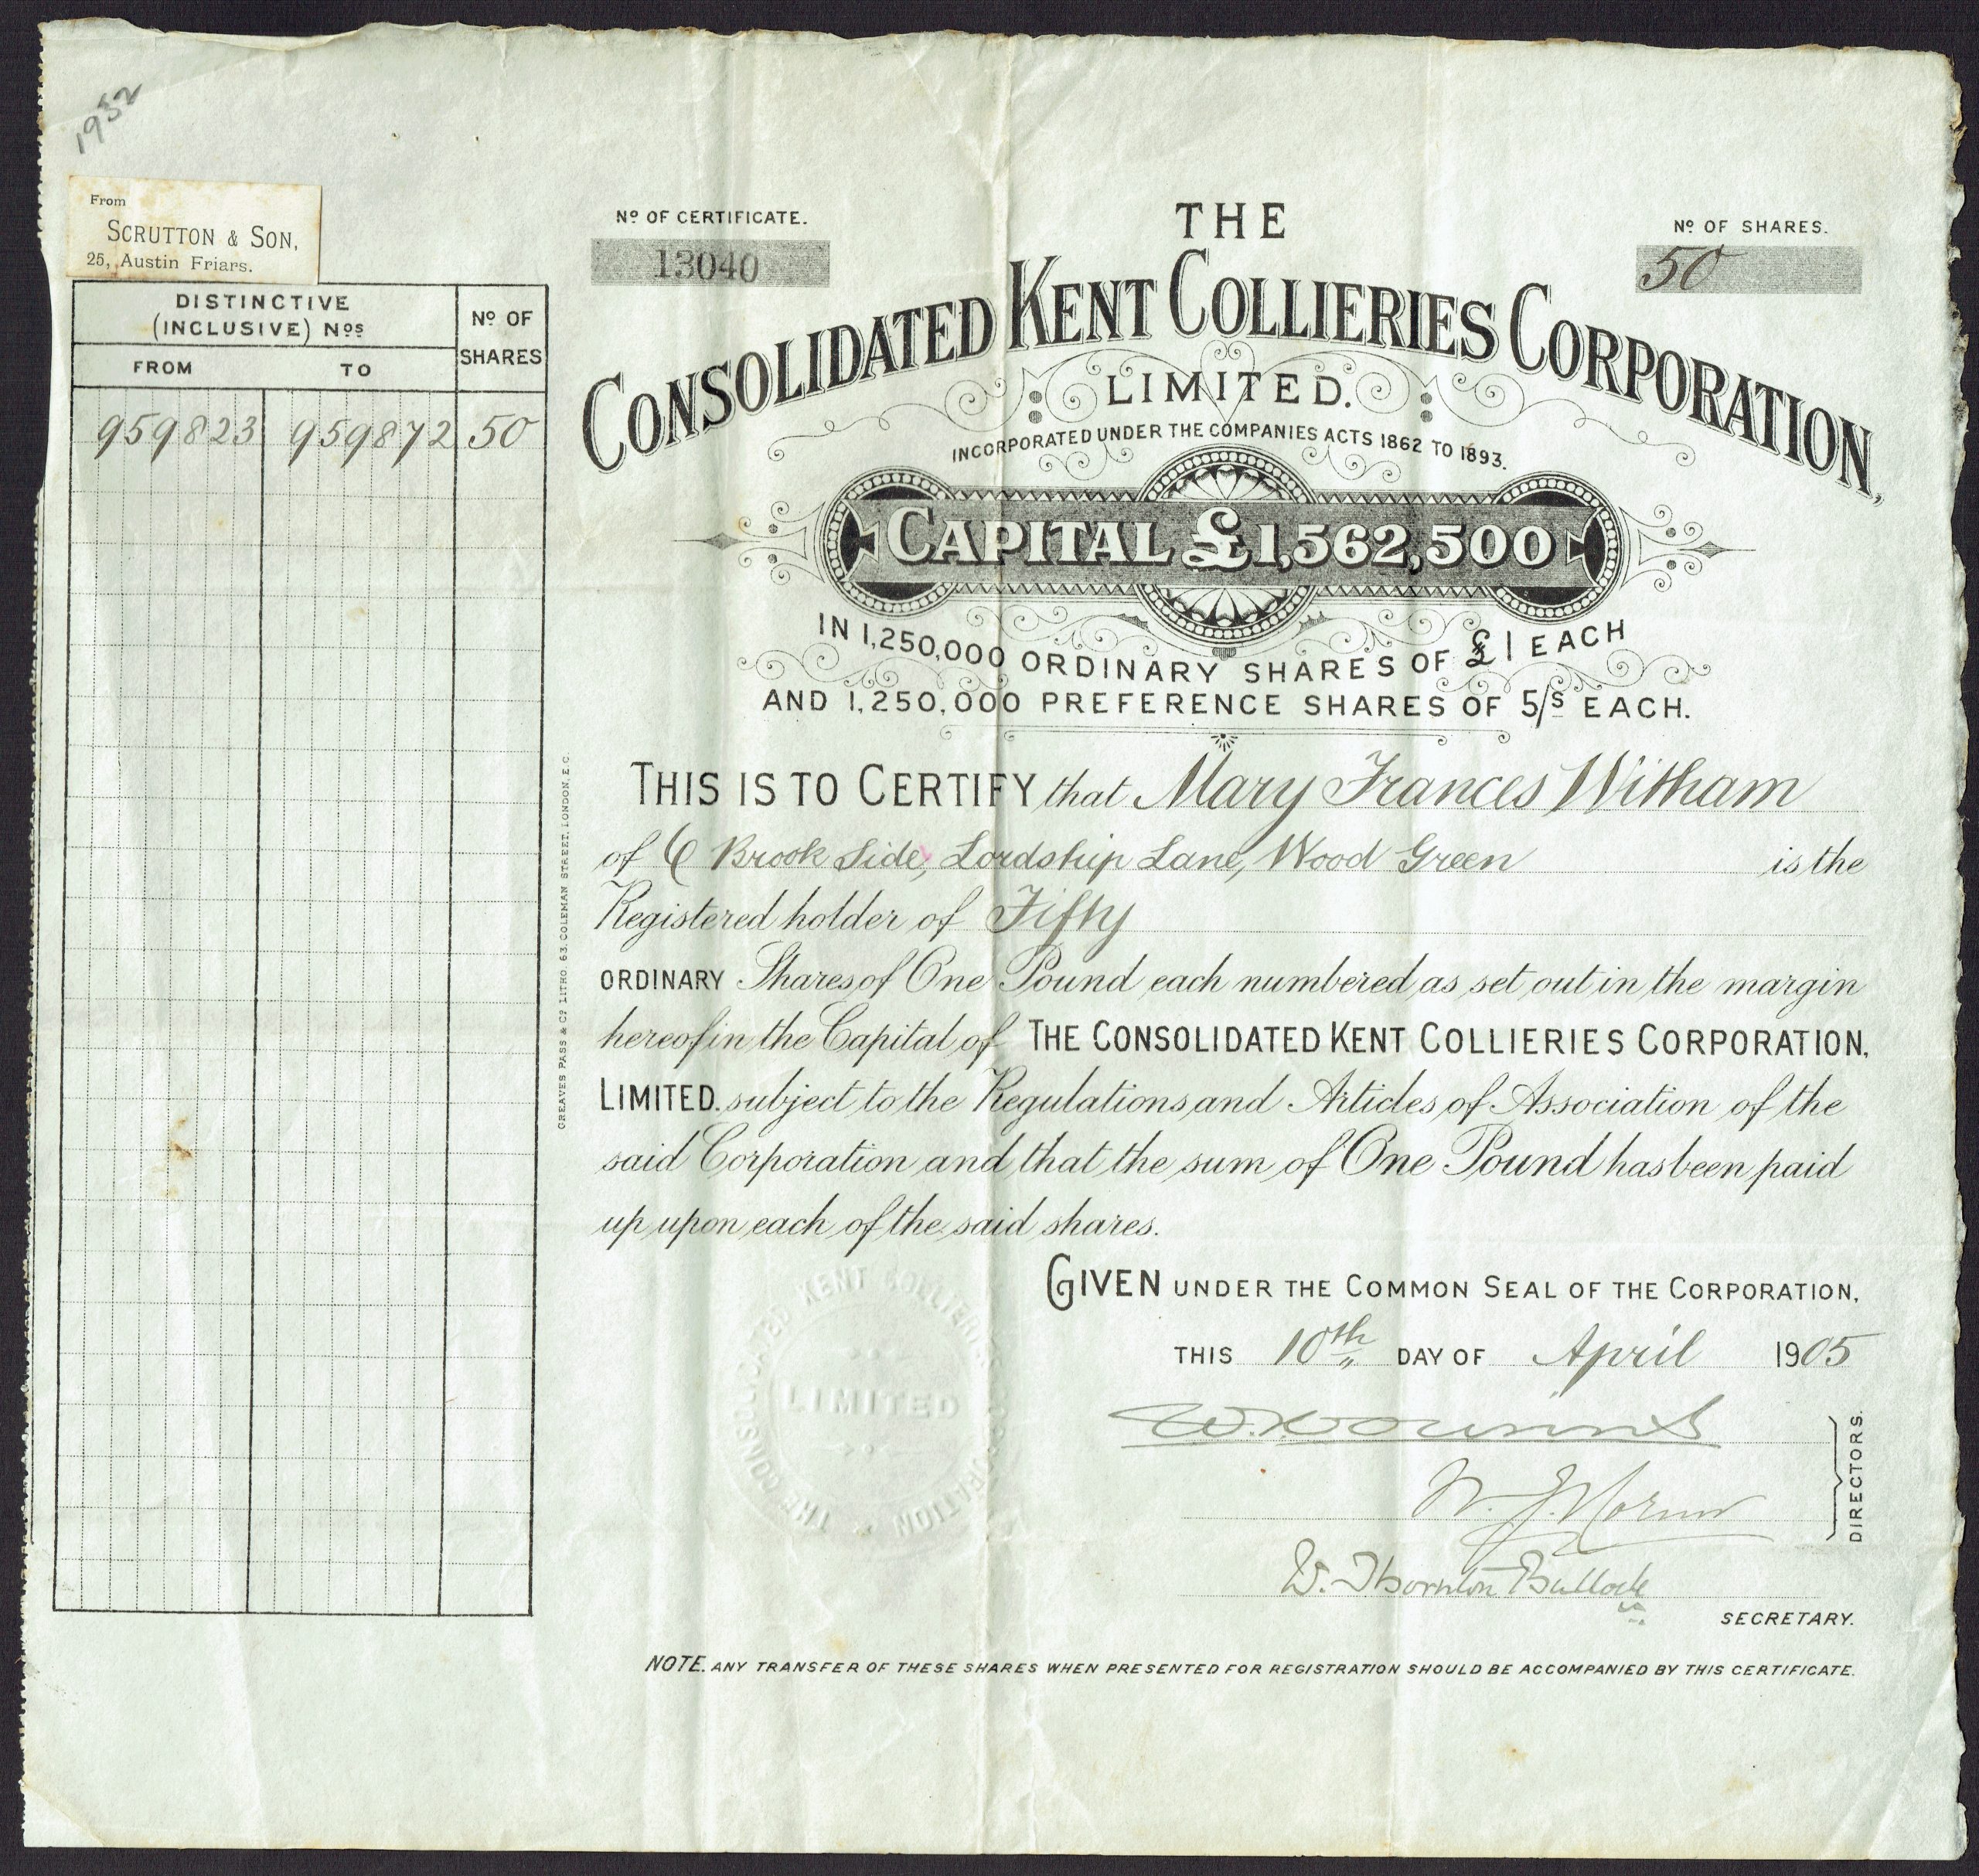 1932
From
SCRUTTON & SON,
25, Austin Friars.
DISTINCTIVE
(INCLUSIVE) Nos
FROM TO
No OF
SHARES
959823 959872 50
No OF CERTIFICATE.
13040
No OF SHARES.
50
THE
CONSOLIDATED KENT COLLIERIES CORPORATION,
LIMITED.
INCORPORATED UNDER THE COMPANIES ACTS 1862 TO 1893.
CAPITAL £1,562,500
IN 1,250,000 ORDINARY SHARES OF £1 EACH
AND 1,250,000 PREFERENCE SHARES OF 5/s EACH.
THIS IS TO CERTIFY that Mary Frances Witham
of 6 Brook Side, Lordship Lane, Wood Green is the
Registered holder of Fifty
ORDINARY Shares of One Pound each numbered as set out in the margin
hereof in the Capital of THE CONSOLIDATED KENT COLLIERIES CORPORATION,
LIMITED. subject to the Regulations and Articles of Association of the
said Corporation and that the sum of One Pound has been paid
up upon each of the said shares.
GIVEN UNDER THE COMMON SEAL OF THE CORPORATION,
THIS 10th DAY OF April 1905
DIRECTORS.
W. Thornton Bullock
SECRETARY.
NOTE. ANY TRANSFER OF THESE SHARES WHEN PRESENTED FOR REGISTRATION SHOULD BE ACCOMPANIED BY THIS CERTIFICATE.
GREAVES PASS & Co LITHO 63, COLEMAN STREET, LONDON, E.C.
THE CONSOLIDATED KENT COLLIERIES CORPORATION
LIMITED